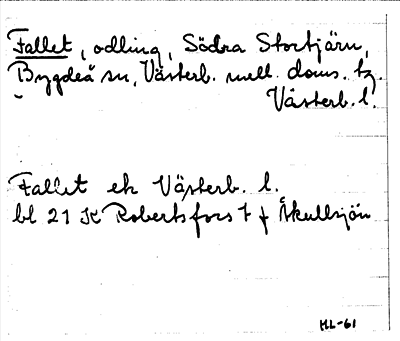 Fallet, odling, Södra Stortjärn,
Bygdeå sn, Västerb. mell. doms. tg.
Västerb. l.
Fallet ek Västerb. l.
bl 21 K Robertsfors t f Åkullsjön
HL-61